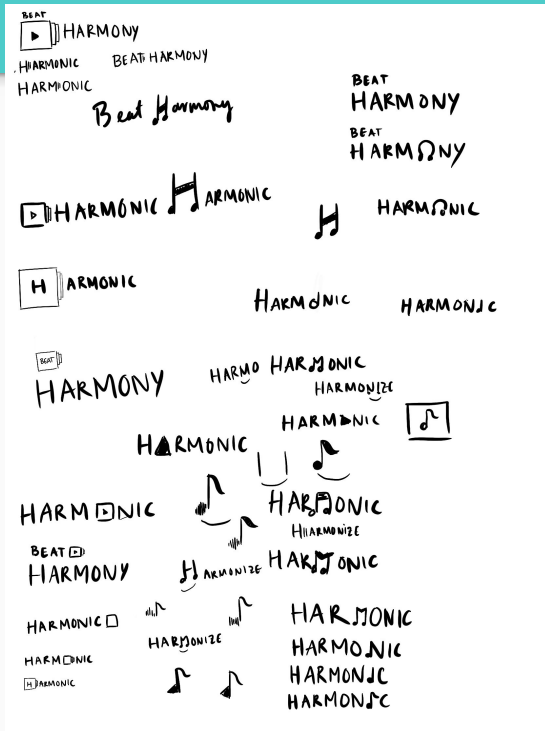 BEAT
HARMONY
HARMONIC
BEAT HARMONY
HARMONIC
Beat Harmony
BEAT
HARMONY
BEAT
HARMONY
HARMONIC
HARMONIC
HARMONIC
H
HARMONIC
H ARMONIC
HARMONIC
HARMONIC
BEAT
HARMONY
HARMO
HARMONIC
HARMONIZE
HARMONIC
HARMONIC
HARMONIC
HARMONIC
HARMONIZE
BEAT
HARMONY
HARMONIZE
HARMONIC
HARMONIC
HARMONIZE
HARMONIC
HARMONIC
HARMONIC
HARMONIC
HARMONIC
HARMONIC